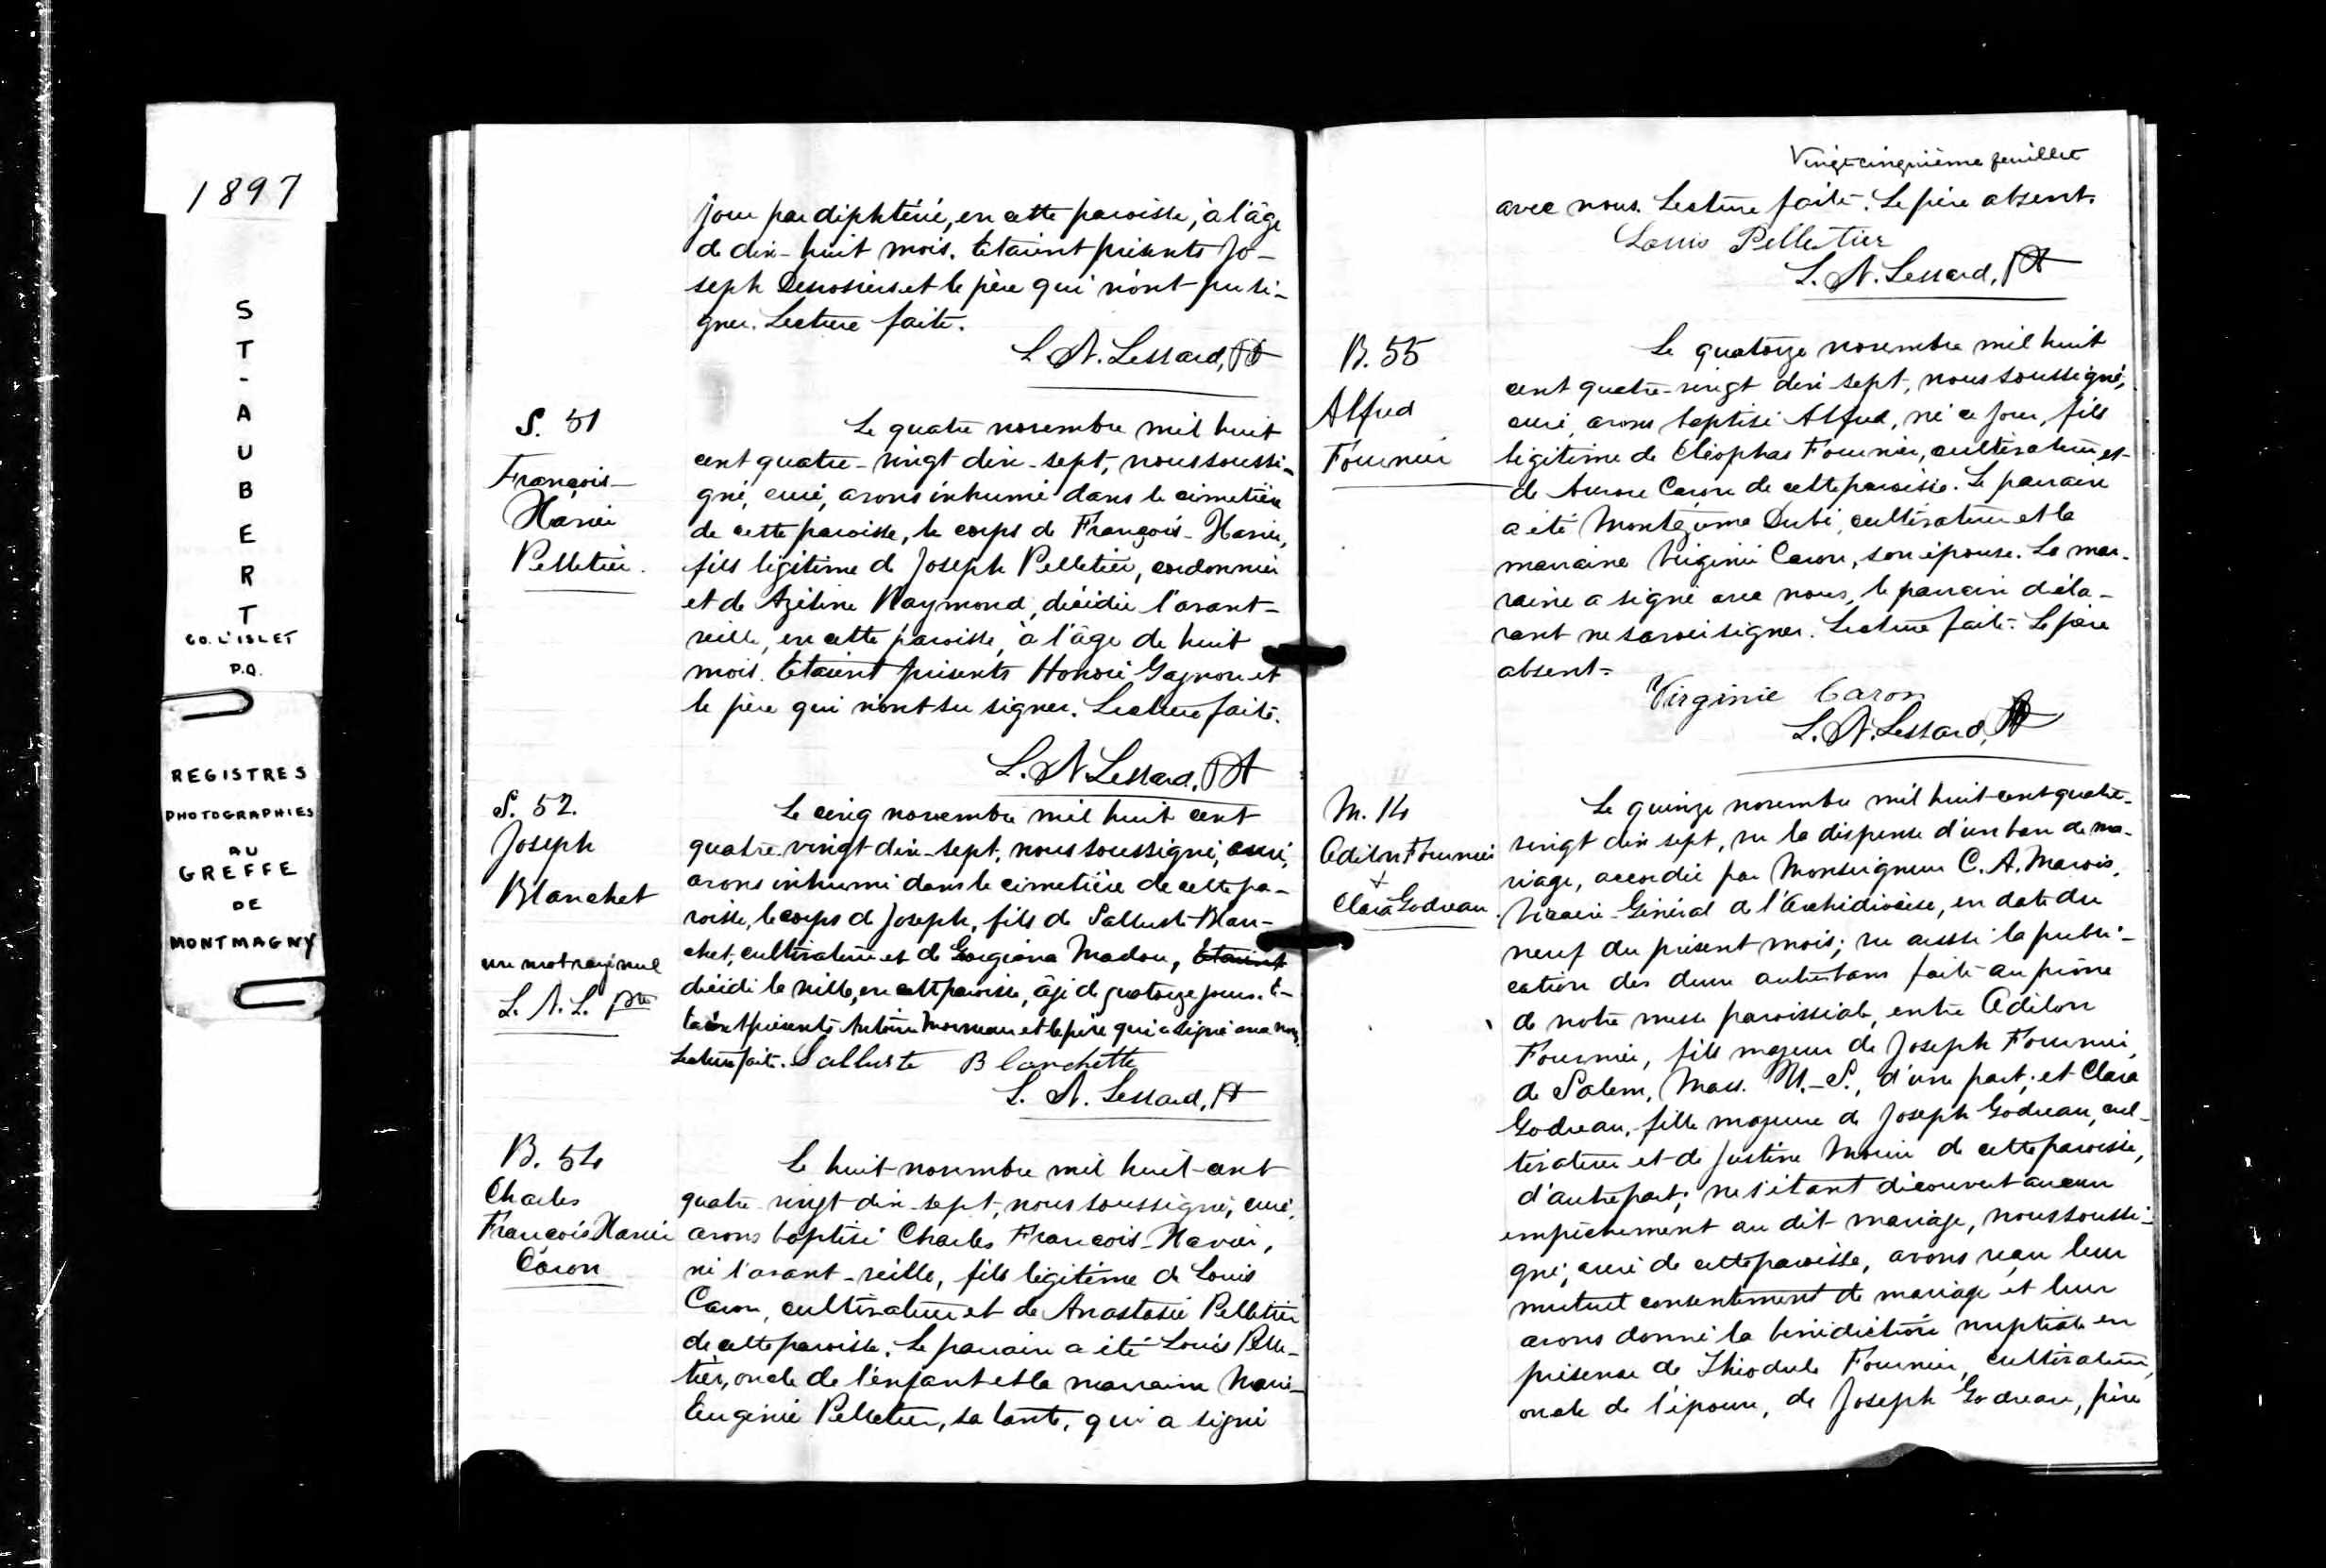 1897
ST-AUBERT
CO. L'ISLET
P.Q.
REGISTRES
PHOTOGRAPHIES
AU
GREFFE
DE
MONTMAGNY
jour par diphtérie, en cette paroisse, à l'âge
de dix-huit mois. Etaient présents Jo-
seph Desrosiers et le père qui n'ont pu si-
gner. Lecture faite.
L. N. Lessard, Ptre
S. 51
François-
Xavier
Pelletier.
Le quatre novembre mil huit
cent quatre-vingt dix-sept, nous soussi-
gné, curé, avons inhumé dans le cimetière
de cette paroisse, le corps de François-Xavier,
fils légitime de Joseph Pelletier, cordonnier
et de Azéline Raymond, décédée l'avant-
veille, en cette paroisse, à l'âge de huit
mois. Etaient présents Honoré Gagnon et
le père qui n'ont su signer. Lecture faite.
L. N. Lessard, Ptre
S. 52.
Joseph
Blanchet
un mot rayé nul
L. N. L. Ptre
Le cinq novembre mil huit cent
quatre-vingt dix-sept, nous soussigné, curé,
avons inhumé dans le cimetière de cette pa-
roisse, le corps de Joseph, fils de Salluste Blan-
chet, cultivateur et de Georgiana Nadou, Etaient
décédé la veille, en cette paroisse, âgé de quatorze jours. E-
taient présents Antoine Morneau et le père qui a signé avec nous.
Lecture faite. Salluste Blanchette
L. N. Lessard, Ptre
B. 54
Charles
François Xavier
Caron
Le huit novembre mil huit cent
quatre-vingt dix-sept, nous soussigné, curé,
avons baptisé Charles François-Xavier,
né l'avant-veille, fils légitime de Louis
Caron, cultivateur et de Anastasie Pelletier
de cette paroisse. Le parrain a été Louis Pelle-
tier, oncle de l'enfant et la marraine Marie-
Eugénie Pelletier, sa tante, qui a signé
Vingt cinquième feuillet
avec nous. Lecture faite. Le père absent.
Louis Pelletier
L. N. Lessard, Ptre
B. 55
Alfred
Fournier
Le quatorze novembre mil huit
cent quatre-vingt dix-sept, nous soussigné,
curé, avons baptisé Alfred, né ce jour, fils
légitime de Cléophas Fournier, cultivateur et
de Aurore Caron de cette paroisse. Le parrain
a été Montézuma Dubé, cultivateur et la
marraine Virginie Caron, son épouse. La mar-
raine a signé avec nous, le parrain décla-
rant ne savoir signer. Lecture faite. Le père
absent.
Virginie Caron
L. N. Lessard, Ptre
M. 14
Odilon Fournier
+
Clara Godreau.
Le quinze novembre mil huit cent quatre-
vingt dix sept, vu la dispense d'un ban de ma-
riage, accordée par Monseigneur C. A. Marois,
Vicaire-Général de l'Archidiocèse, en date du
neuf du présent mois; vu aussi la publi-
cation des deux autres bans faite au prône
de notre messe paroissiale, entre Odilon
Fournier, fils majeur de Joseph Fournier,
de Salem, Mass. U.-S., d'une part; et Clara
Godreau, fille majeure de Joseph Godreau, cul-
tivateur et de Justine Morin de cette paroisse,
d'autre part; ne s'étant découvert aucun
empêchement au dit mariage, nous soussi-
gné, curé de cette paroisse, avons reçu leur
mutuel consentement de mariage et leur
avons donné la bénédiction nuptiale en
présence de Théodule Fournier, cultivateur,
oncle de l'époux, de Joseph Godreau, père